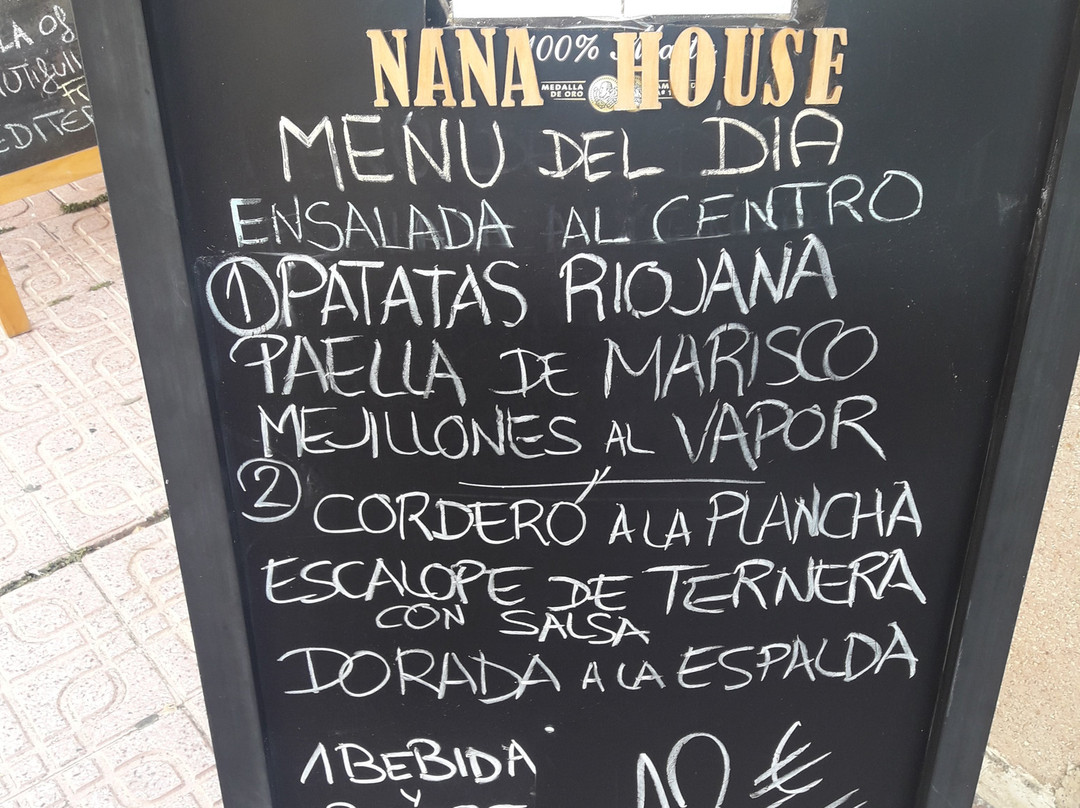 LA OS
EDITER
NANA HOUSE
100%
MEDALLA
DE ORO
MENU DEL DIA
ENSALADA AL CENTRO
1 PATATAS RIOJANA
PAELLA DE MARISCO
MEJILLONES AL VAPOR
2 CORDERO A LA PLANCHA
ESCALOPE DE TERNERA
CON SALSA
DORADA A LA ESPALDA
1 BEBIDA
Y
10 €